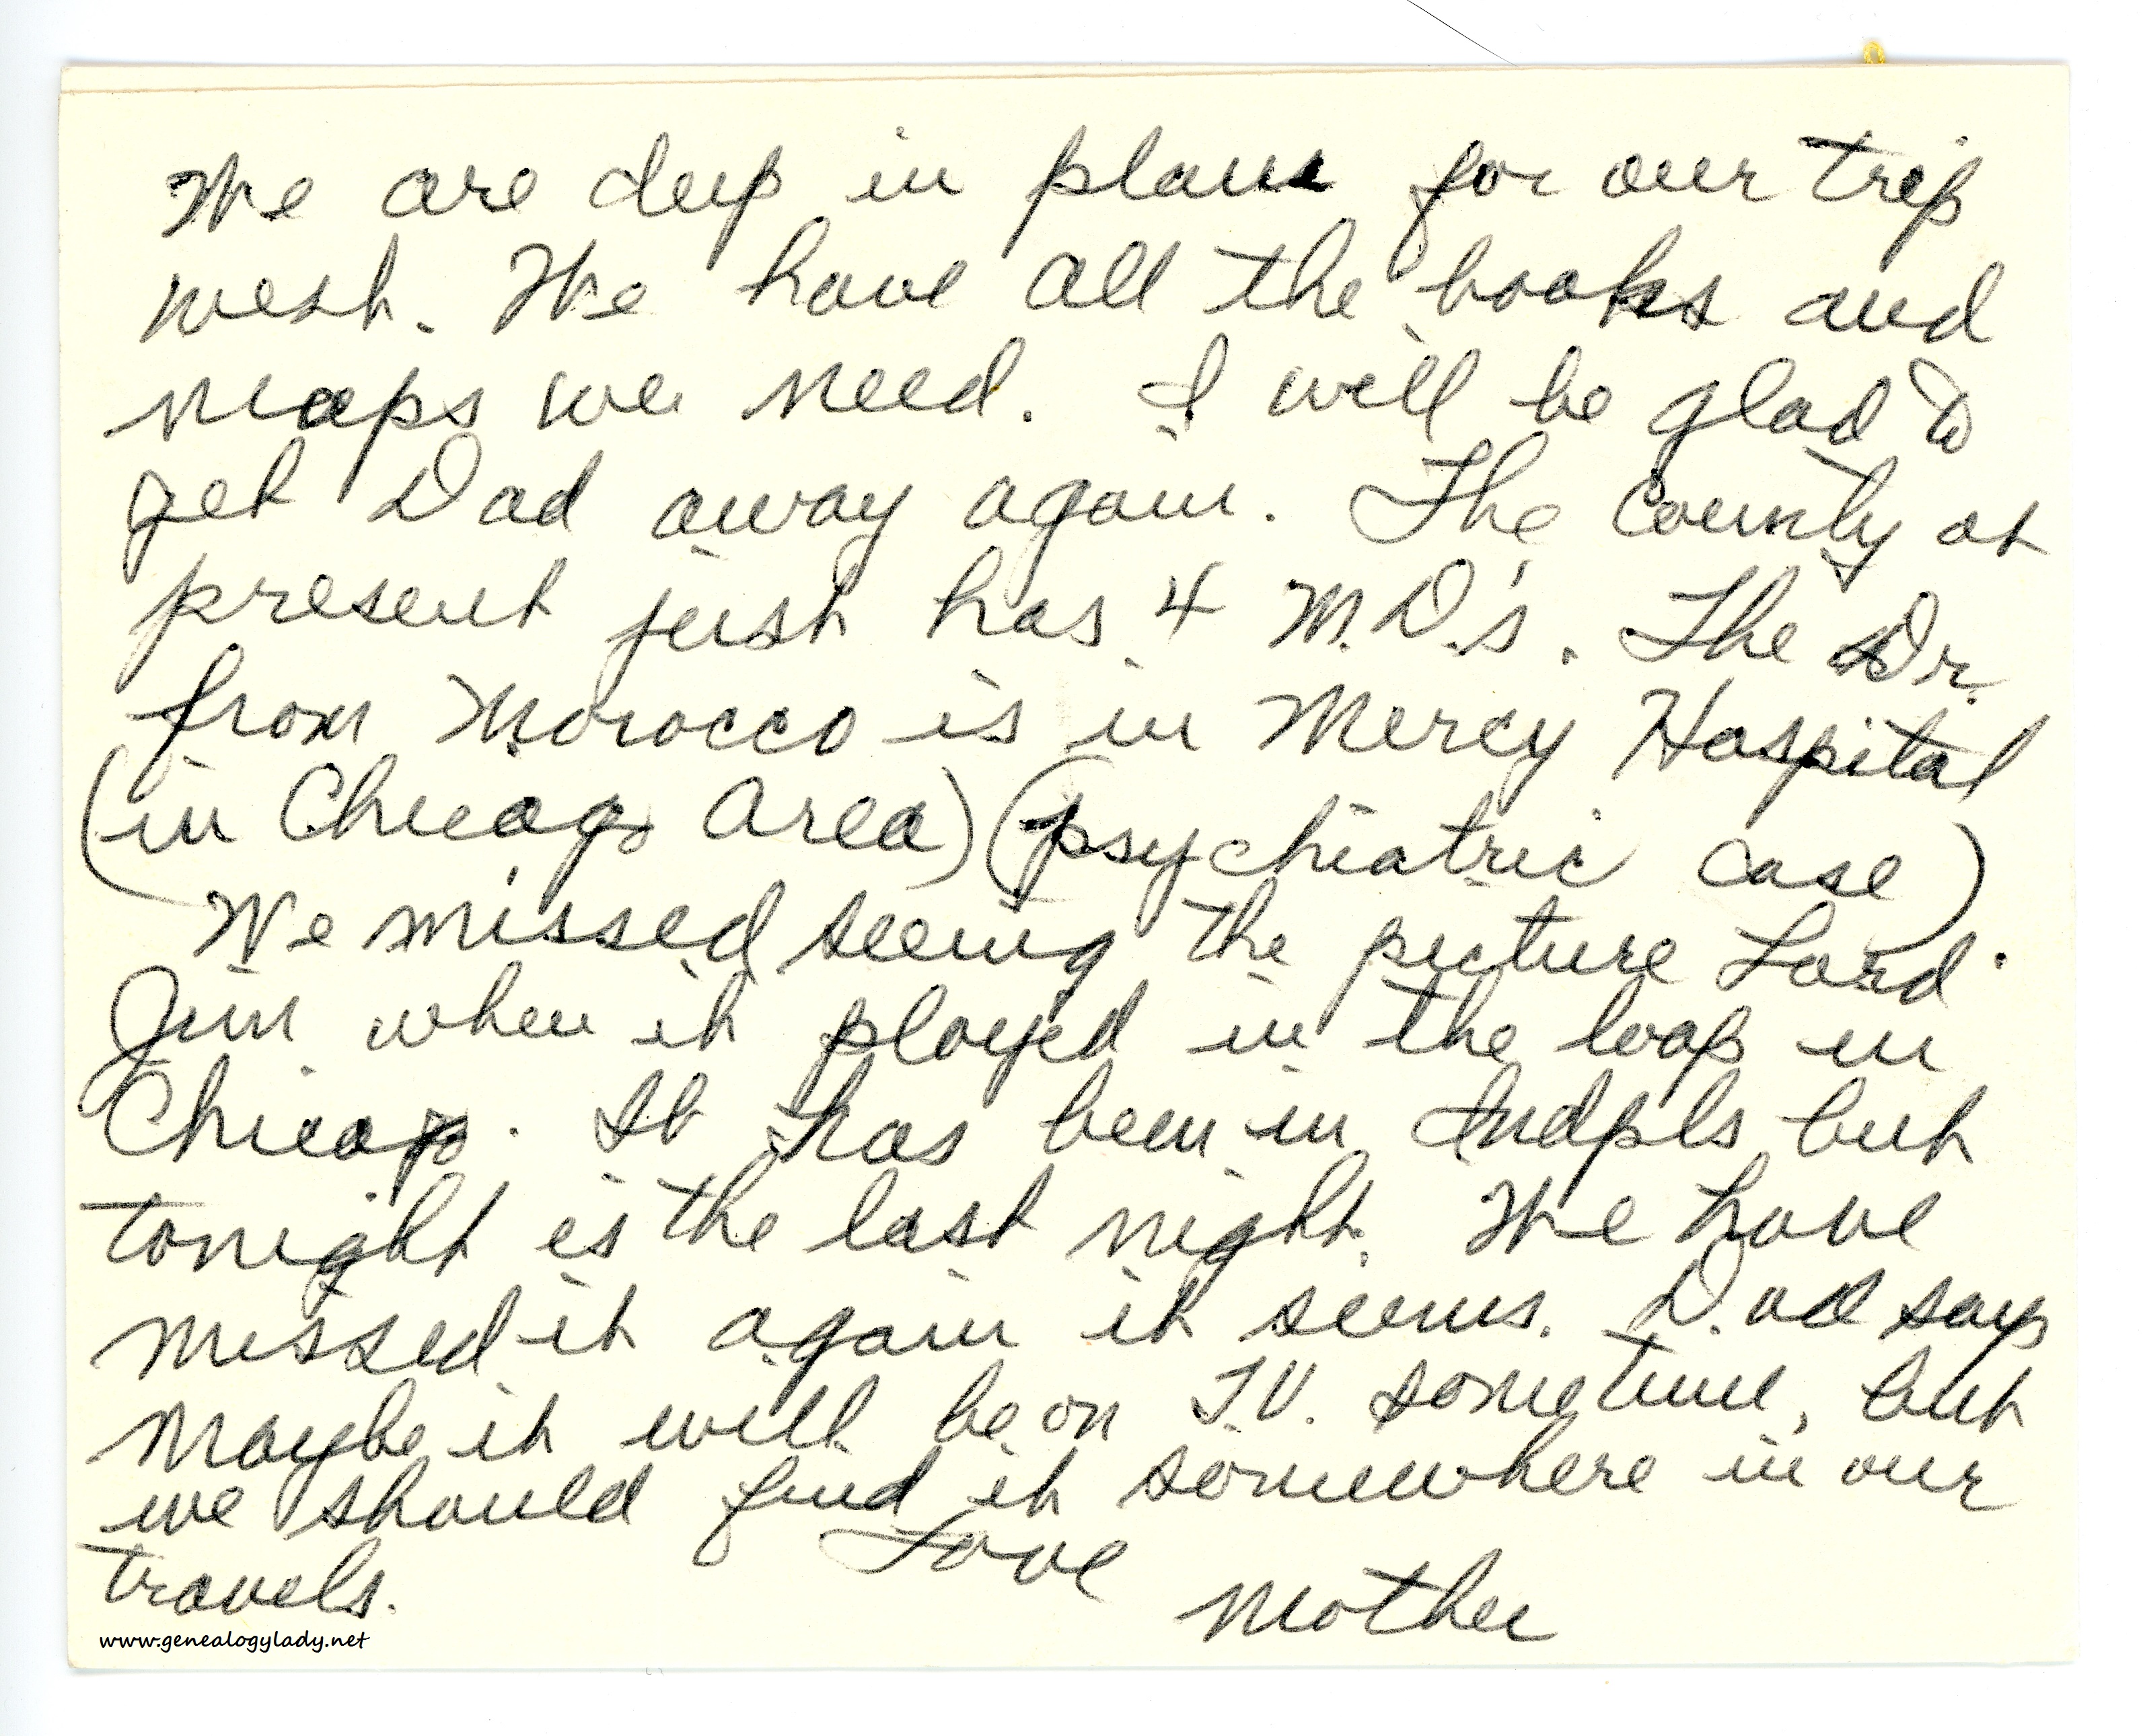 We are deep in plans for our trip
west. We have all the books and
maps we need. I will be glad to
get Dad away again. The County at
present just has 4 M.D.'s. The Dr.
from Morocco is in Mercy Hospital
(in Chicago area) (psychiatric case).
We missed seeing the picture Lord
Jim when it played in the loop in
Chicago. It has been in Indpls but
tonight is the last night. We have
missed it again it seems. Dad says
maybe it will be on T.V. sometime, but
we should find it somewhere in our
travels.
Love
Mother
www.genealogylady.net